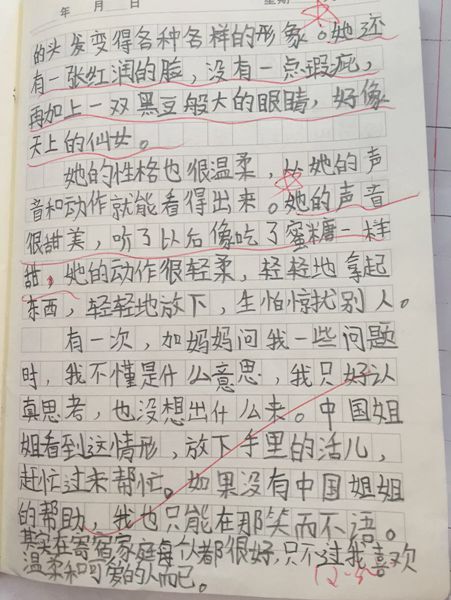 年 月 日 星期
的头发变得各种各样的形象。她还
有一张红润的脸，没有一点瑕疵，
再加上一双黑豆般大的眼睛，好像
天上的仙女。
她的性格也很温柔，从她的声
音和动作就能看得出来。她的声音
很甜美，听了以后像吃了蜜糖一样
甜，她的动作很轻柔，轻轻地拿起
东西，轻轻地放下，生怕惊扰别人。
有一次，加妈妈问我一些问题
时，我不懂是什么意思，我只好认
真思考，也没想出什么来。中国姐
姐看到这情形，放下手里的活儿，
赶忙过来帮忙。如果没有中国姐姐
的帮助，我也只能在那笑而不语。
其实在寄宿家庭每个人都很好，只不过我喜欢
温柔和可爱的人而已。